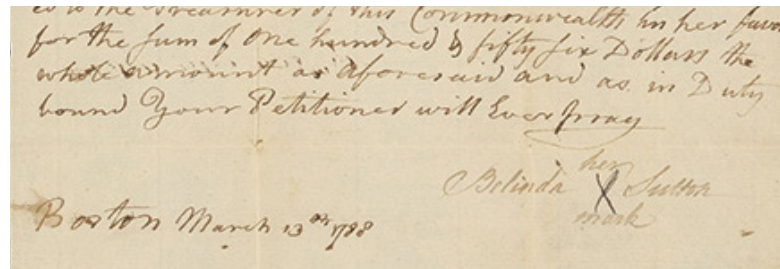 ed to the Treasurer of this Commonwealth in her favor
for the sum of One hundred & fifty six Dollars the
whole amount as aforesaid and as in Duty
bound Your Petitioner will Ever pray
her
Belinda X Sutton
mark
Boston March 13th 1788